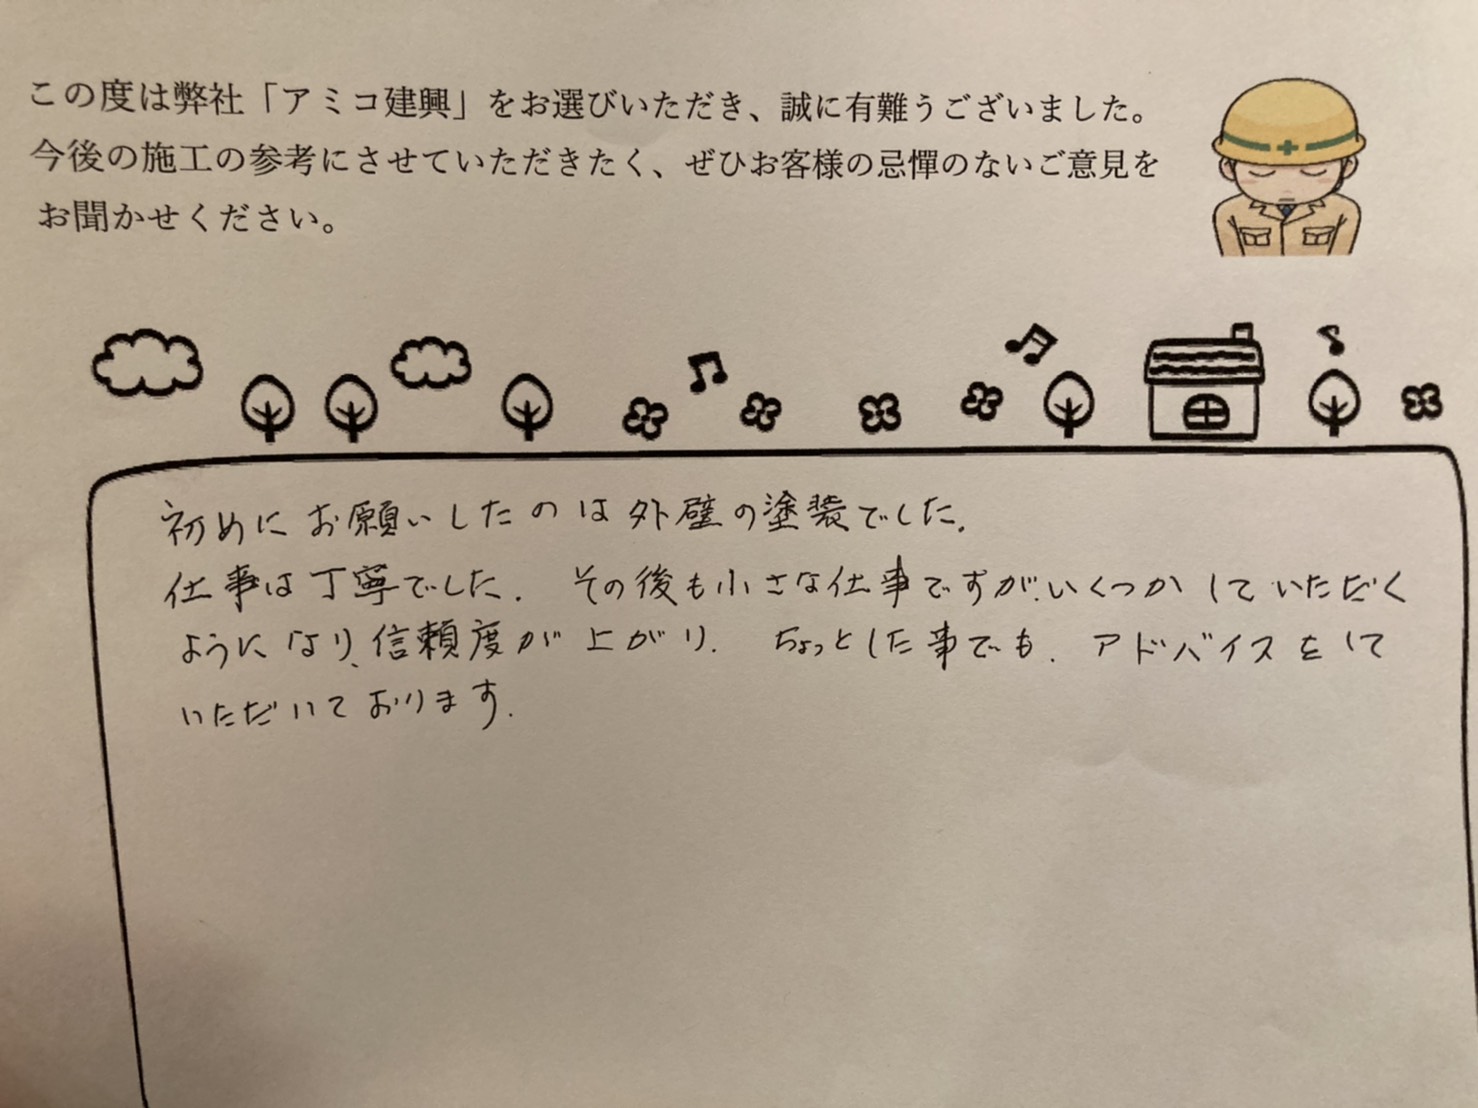 この度は弊社「アミコ建興」をお選びいただき、誠に有難うございました。
今後の施工の参考にさせていただきたく、ぜひお客様の忌憚のないご意見を
お聞かせください。
初めにお願いしたのは外壁の塗装でした。
仕事は丁寧でした。その後も小さな仕事ですが、いくつかしていただく
ようになり、信頼度が上がり、ちょっとした事でも、アドバイスをして
いただいております。